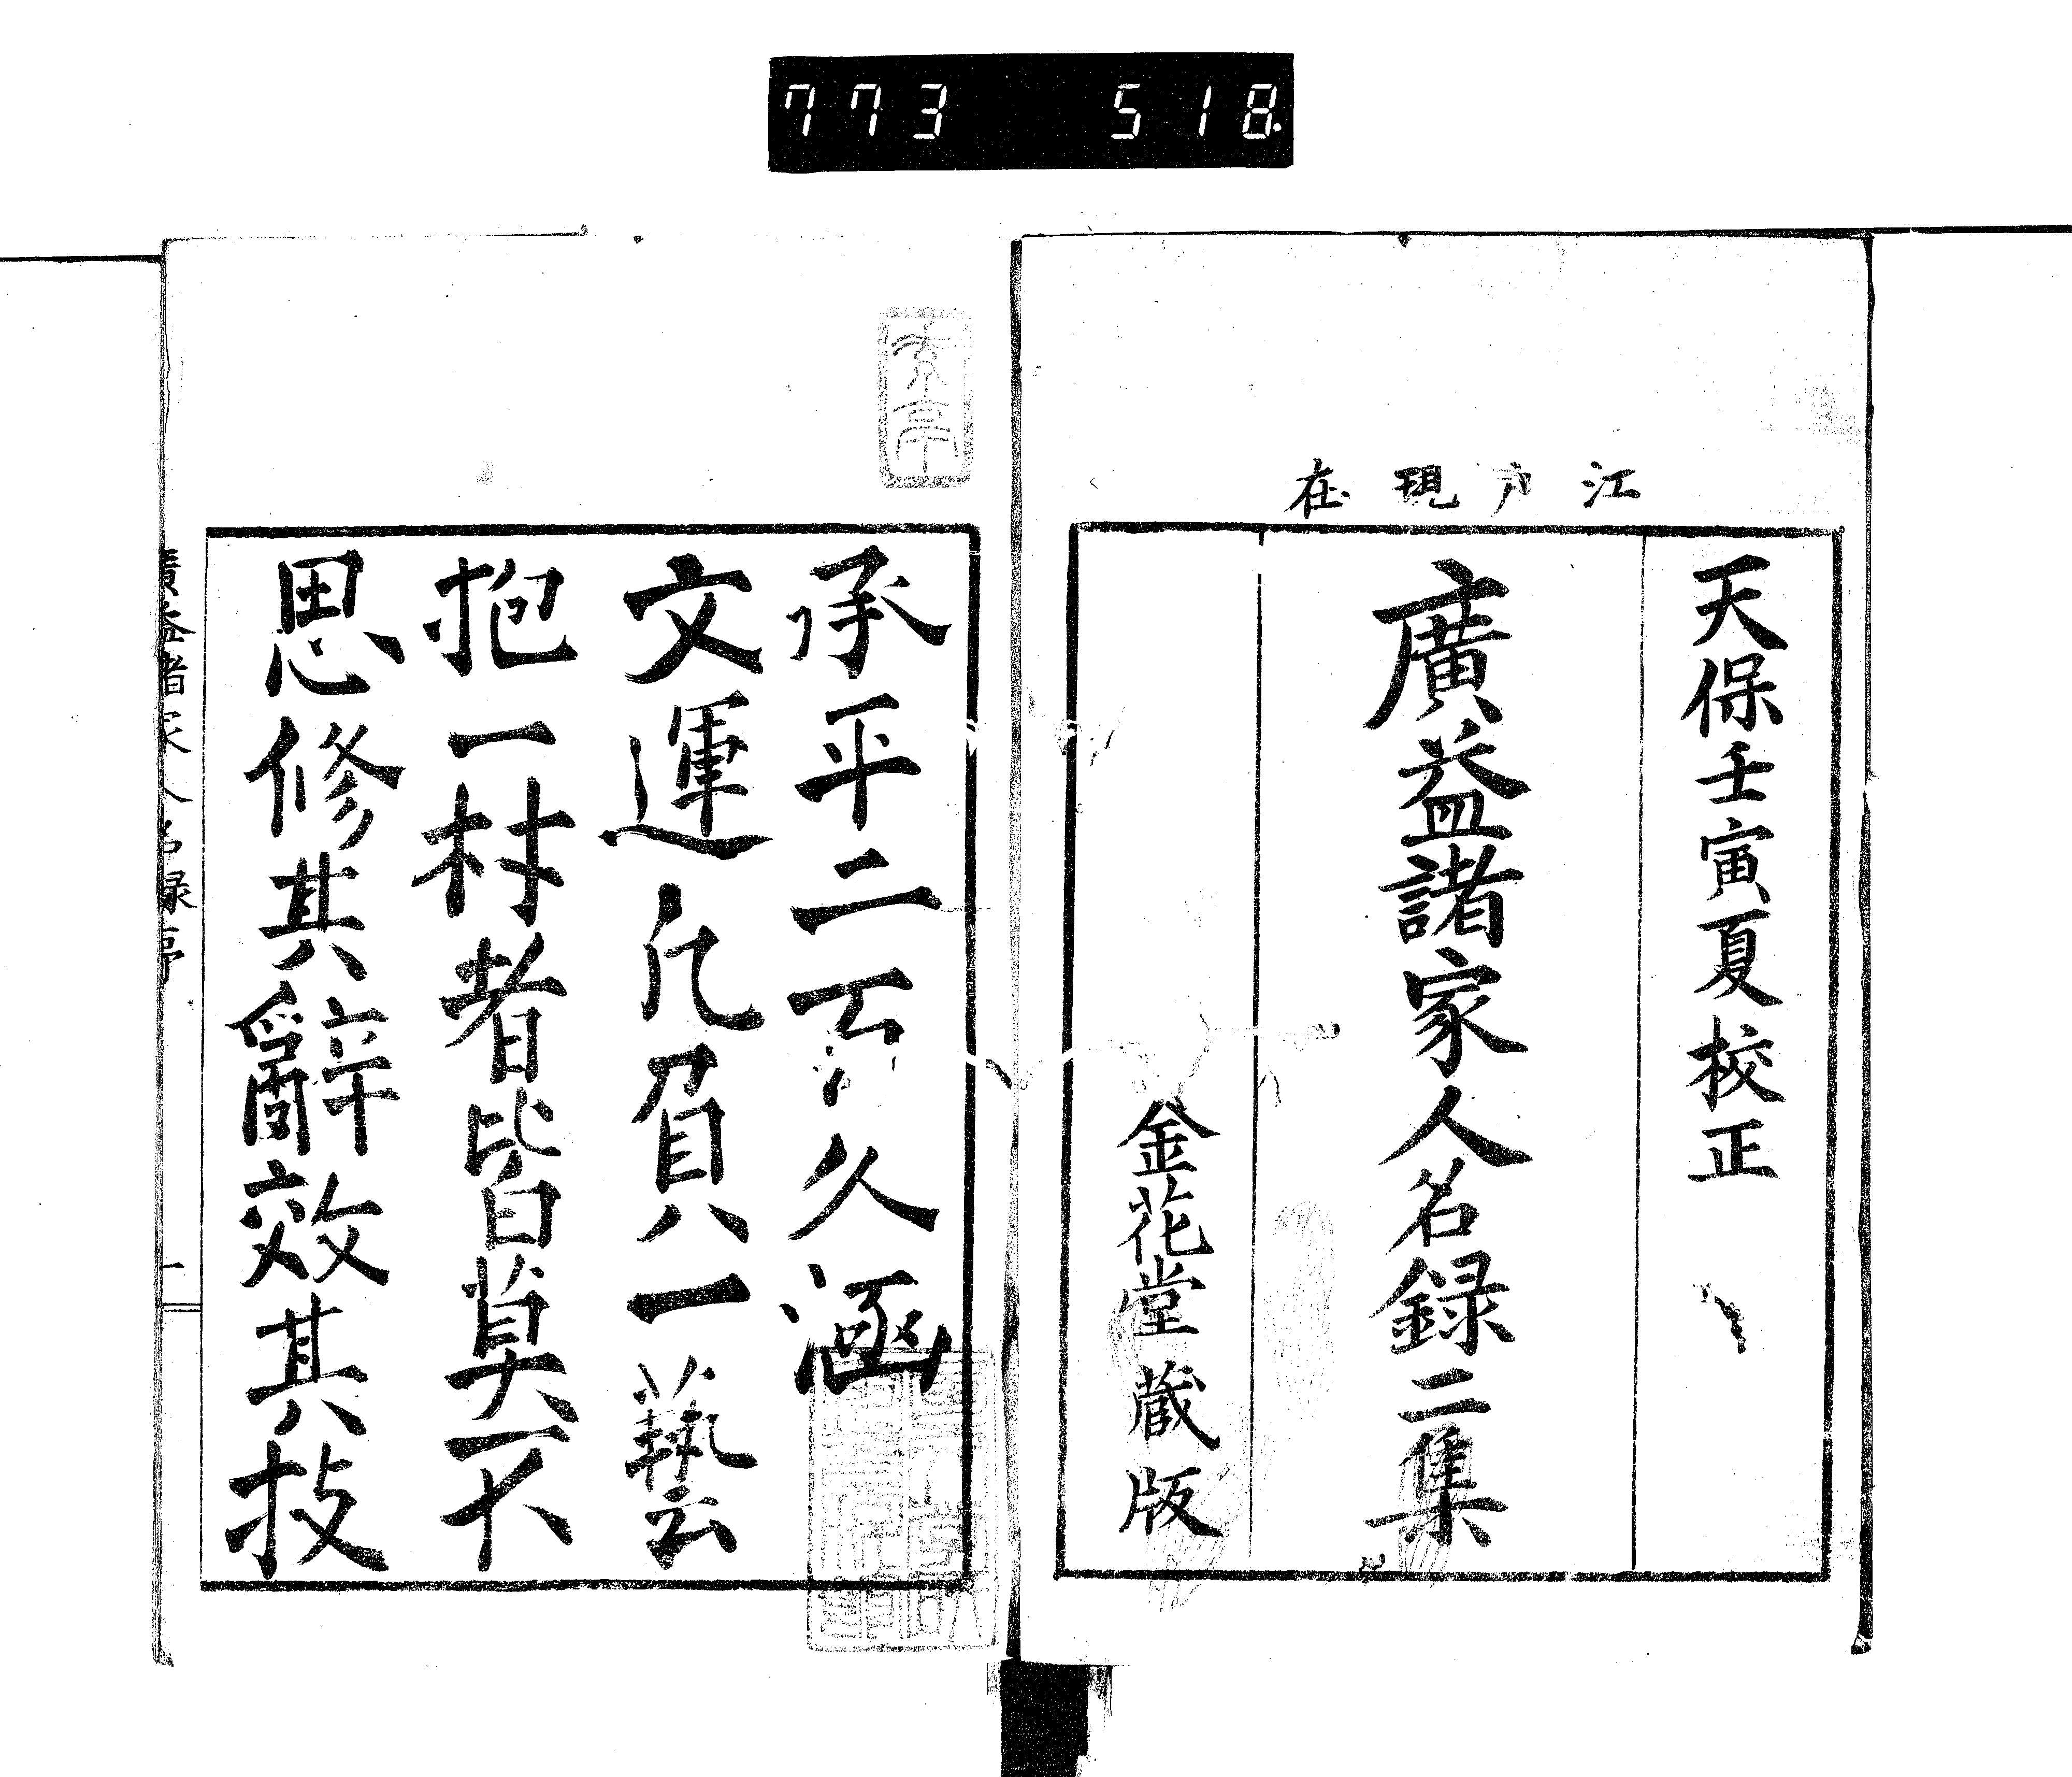 773 518.
江戸現在
天保壬寅夏校正
廣益諸家人名録二集
金花堂蔵版
承平二久涵
文運凡負一藝
抱一材者皆莫不
思修其辭效其技
廣益諸家人名録序 一